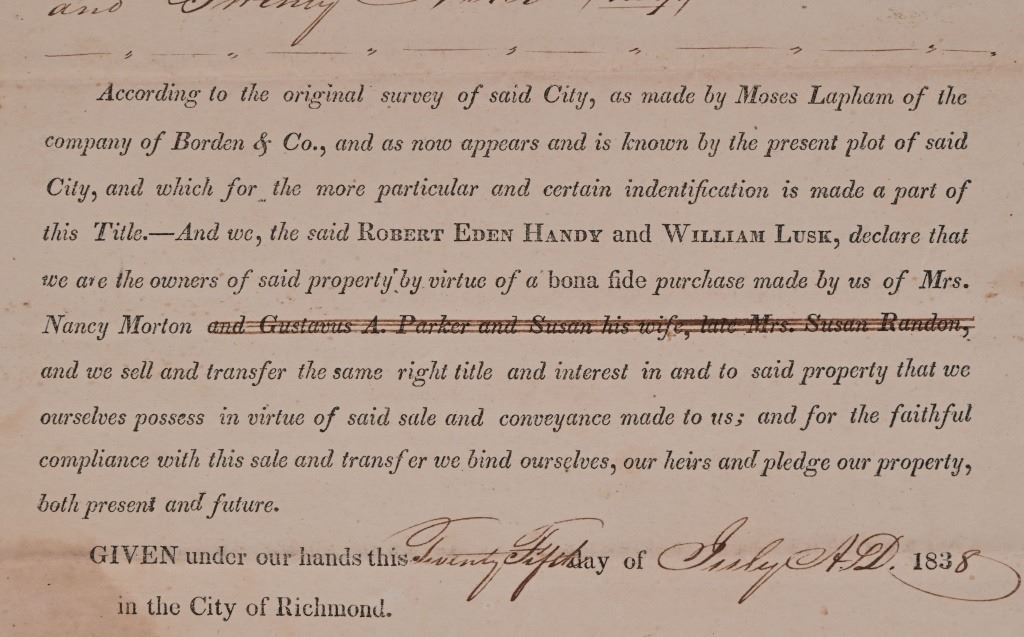 and Twenty
According to the original survey of said City, as made by Moses Lapham of the
company of Borden & Co., and as now appears and is known by the present plot of said
City, and which for the more particular and certain indentification is made a part of
this Title.—And we, the said ROBERT EDEN HANDY and WILLIAM LUSK, declare that
we are the owners of said property by virtue of a bona fide purchase made by us of Mrs.
Nancy Morton and Gustavus A. Parker and Susan his wife, late Mrs. Susan Randon,
and we sell and transfer the same right title and interest in and to said property that we
ourselves possess in virtue of said sale and conveyance made to us; and for the faithful
compliance with this sale and transfer we bind ourselves, our heirs and pledge our property,
both present and future.
GIVEN under our hands this Twenty Fifth day of July A.D. 1838
in the City of Richmond.